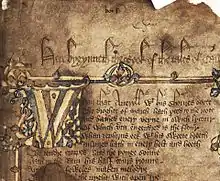 Here bygynneth the Book of the tales of Caunt
Whan that Aueryll w his shoures soote
The droghte of march hath perced to the roote
And bathed euery veyne in swich lycour
Of which vertu engendred is the flour
Whan zephirus eek w his sweete breeth
Inspired hath in euery holt and heeth
The tendre croppes and the yonge sonne
Hath in the Ram his half cours yronne
And smale foweles maken melodye
That slepen al the nyght with open Iye